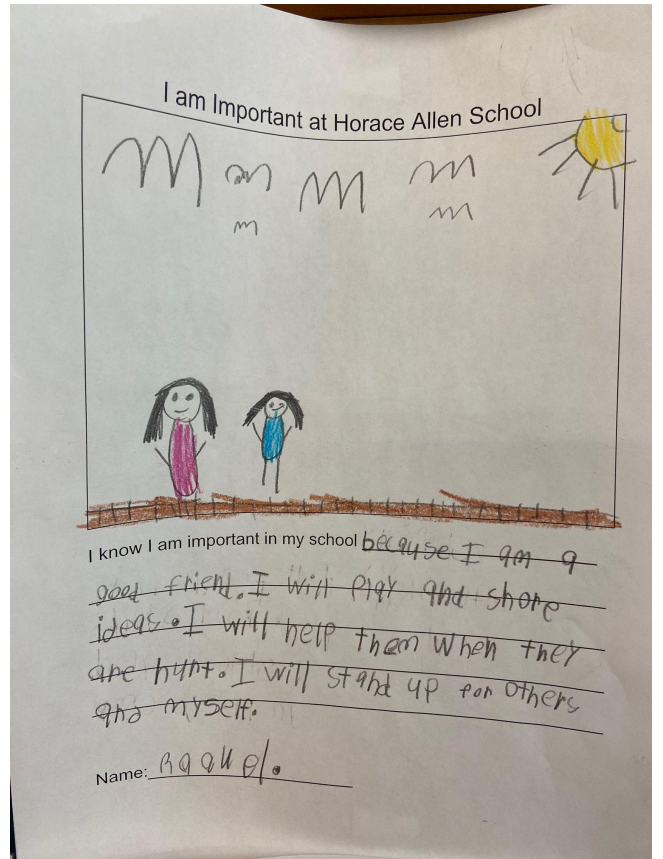 I am Important at Horace Allen School
I know I am important in my school because I am a
good friend. I will play and share
ideas. I will help them when they
are hurt. I will stand up for others
and myself.
Name: Raquel.